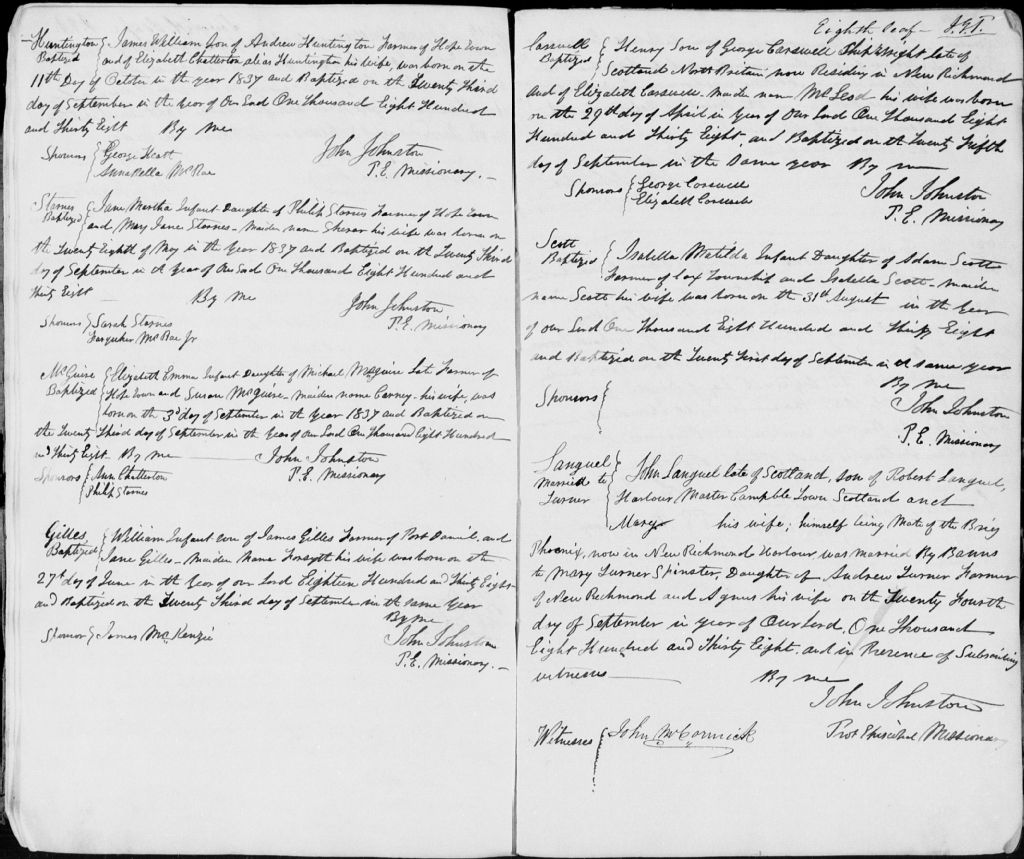 Huntington Baptized { James William Son of Andrew Huntington Farmer of Hope Town
and of Elizabeth Chatterton alias Huntington his wife, was born on the
11th Day of October in the year 1837 and Baptized on the Twenty Third
day of September in the Year of Our Lord One Thousand Eight Hundred
and Thirty Eight By Me
Sponsors { George Scott
Annabella McRae
John Johnston
P.E. Missionary.
Starnes Baptized { Jane Martha Infant Daughter of Philip Starnes Farmer of Hope Town
and Mary Jane Starnes - maiden name his wife was born on
the Twenty Eighth of May in the Year 1837 and Baptized on the Twenty Third
day of September in the Year of Our Lord One Thousand Eight Hundred and
Thirty Eight By Me
John Johnston
P.E. Missionary
Sponsors { Sarah Starnes
Farquher McRae Jr
McGuire Baptized { Elizabeth Emma Infant Daughter of Michael McGuire Late Farmer of
Hope Town and Susan McGuire - maiden name Carney - his wife, was
born on the 3d day of September in the Year 1837 and Baptized on
the Twenty Third day of September in the Year of Our Lord One Thousand Eight Hundred
and Thirty Eight By me
John Johnston
P.E. Missionary
Sponsors { Ann Chatterton
Philip Starnes
Gilles Baptized { William Infant son of James Gilles Farmer of Port Daniel, and
Jane Gilles - maiden name Forsyth his wife was born on the
27th day of June in the Year of our Lord Eighteen Hundred and Thirty Eight
and Baptized on the Twenty Third day of September in the same Year
By me
John Johnston
P.E. Missionary.
Sponsor { James McKenzie
Eighth leaf -
Carswell Baptized { Henry Son of George Carswell Shipwright late of
Scotland North Britain now Residing in New Richmond
and of Elizabeth Carswell - maiden name McLeod his wife was born
on the 29th day of April in Year of Our Lord One Thousand Eight
Hundred and Thirty Eight, and Baptized on the Twenty Fifth
day of September in the Same year By me
Sponsors { George Carswell
Elizabeth Carswell
John Johnston
P.E. Missionary
Scott Baptized { Isabella Matilda Infant Daughter of Adam Scott
Farmer of Cox Township and Isabella Scott - maiden
name Scott his wife was born on the 31st August in the Year
of our Lord One Thousand Eight Hundred and Thirty Eight
and Baptized on the Twenty First day of September in the same year
By me
Sponsors {
John Johnston
P.E. Missionary
Languel Married to Turner } John Languel late of Scotland, son of Robert Languel,
Harbour Master Campble Town Scotland and
Mary his wife; himself being Mate of the Brig
Phœnix, now in New Richmond Harbour was married By Banns
to Mary Turner Spinster, Daughter of Andrew Turner Farmer
of New Richmond and Agnes his wife on the Twenty Fourth
day of September in year of Our Lord, One Thousand
Eight Hundred and Thirty Eight, and in Presence of Subscribing
witnesses By me
John Johnston
Prot Episcopal Missionary
Witnesses { John McCormick